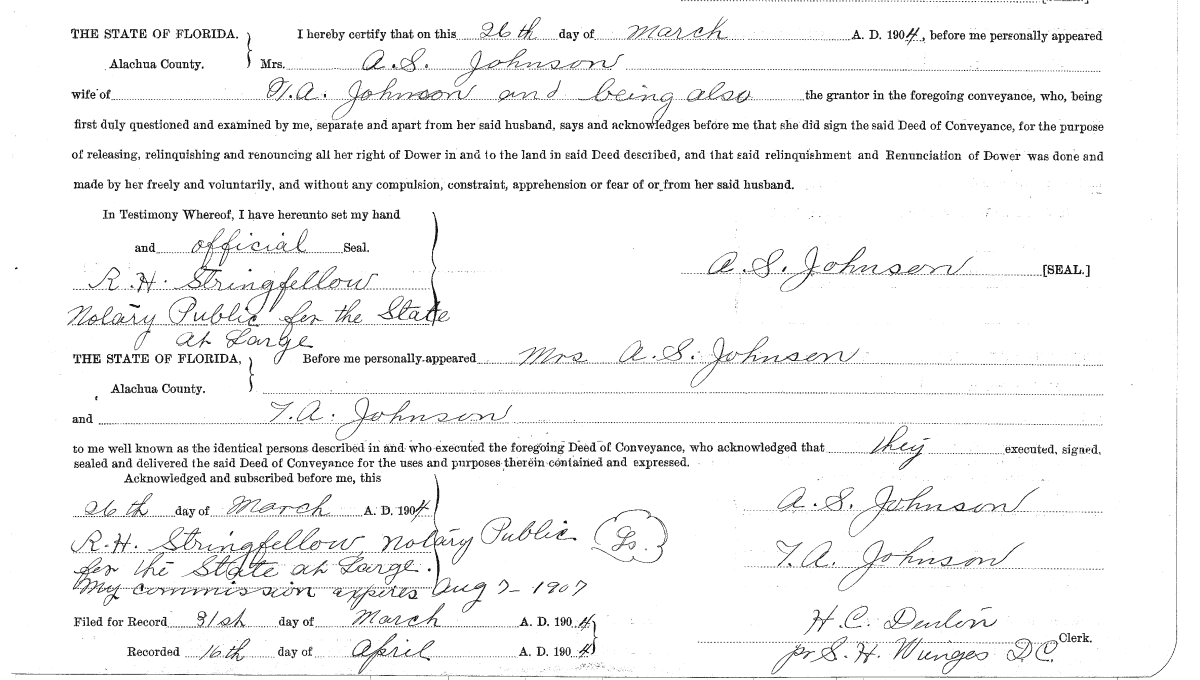 THE STATE OF FLORIDA. I hereby certify that on this 26th day of March A. D. 1904, before me personally appeared
Alachua County. Mrs. A.S. Johnson
wife of T.A. Johnson and being also the grantor in the foregoing conveyance, who, being
first duly questioned and examined by me, separate and apart from her said husband, says and acknowledges before me that she did sign the said Deed of Conveyance, for the purpose
of releasing, relinquishing and renouncing all her right of Dower in and to the land in said Deed described, and that said relinquishment and Renunciation of Dower was done and
made by her freely and voluntarily, and without any compulsion, constraint, apprehension or fear of or from her said husband.
In Testimony Whereof, I have hereunto set my hand
and official Seal.
A.S. Johnson [SEAL.]
R.H. Stringfellow
Notary Public for the State
at Large
THE STATE OF FLORIDA, Before me personally appeared Mrs A.S. Johnson
Alachua County.
and T.A. Johnson
to me well known as the identical persons described in and who executed the foregoing Deed of Conveyance, who acknowledged that they executed, signed,
sealed and delivered the said Deed of Conveyance for the uses and purposes therein contained and expressed.
Acknowledged and subscribed before me, this
26th day of March A. D. 1904
A.S. Johnson
R.H. Stringfellow, Notary Public Ls.
T.A. Johnson
for the State at Large.
My commission expires Aug 7- 1907
Filed for Record 31st day of March A. D. 1904
H.C. Denton Clerk.
Recorded 16th day of April A. D. 1904
pr S.H. Wienges D.C.